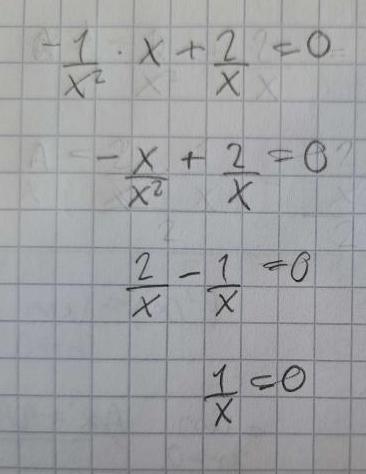 -1/x² · x + 2/x = 0
-x/x² + 2/x = 0
2/x - 1/x = 0
1/x = 0